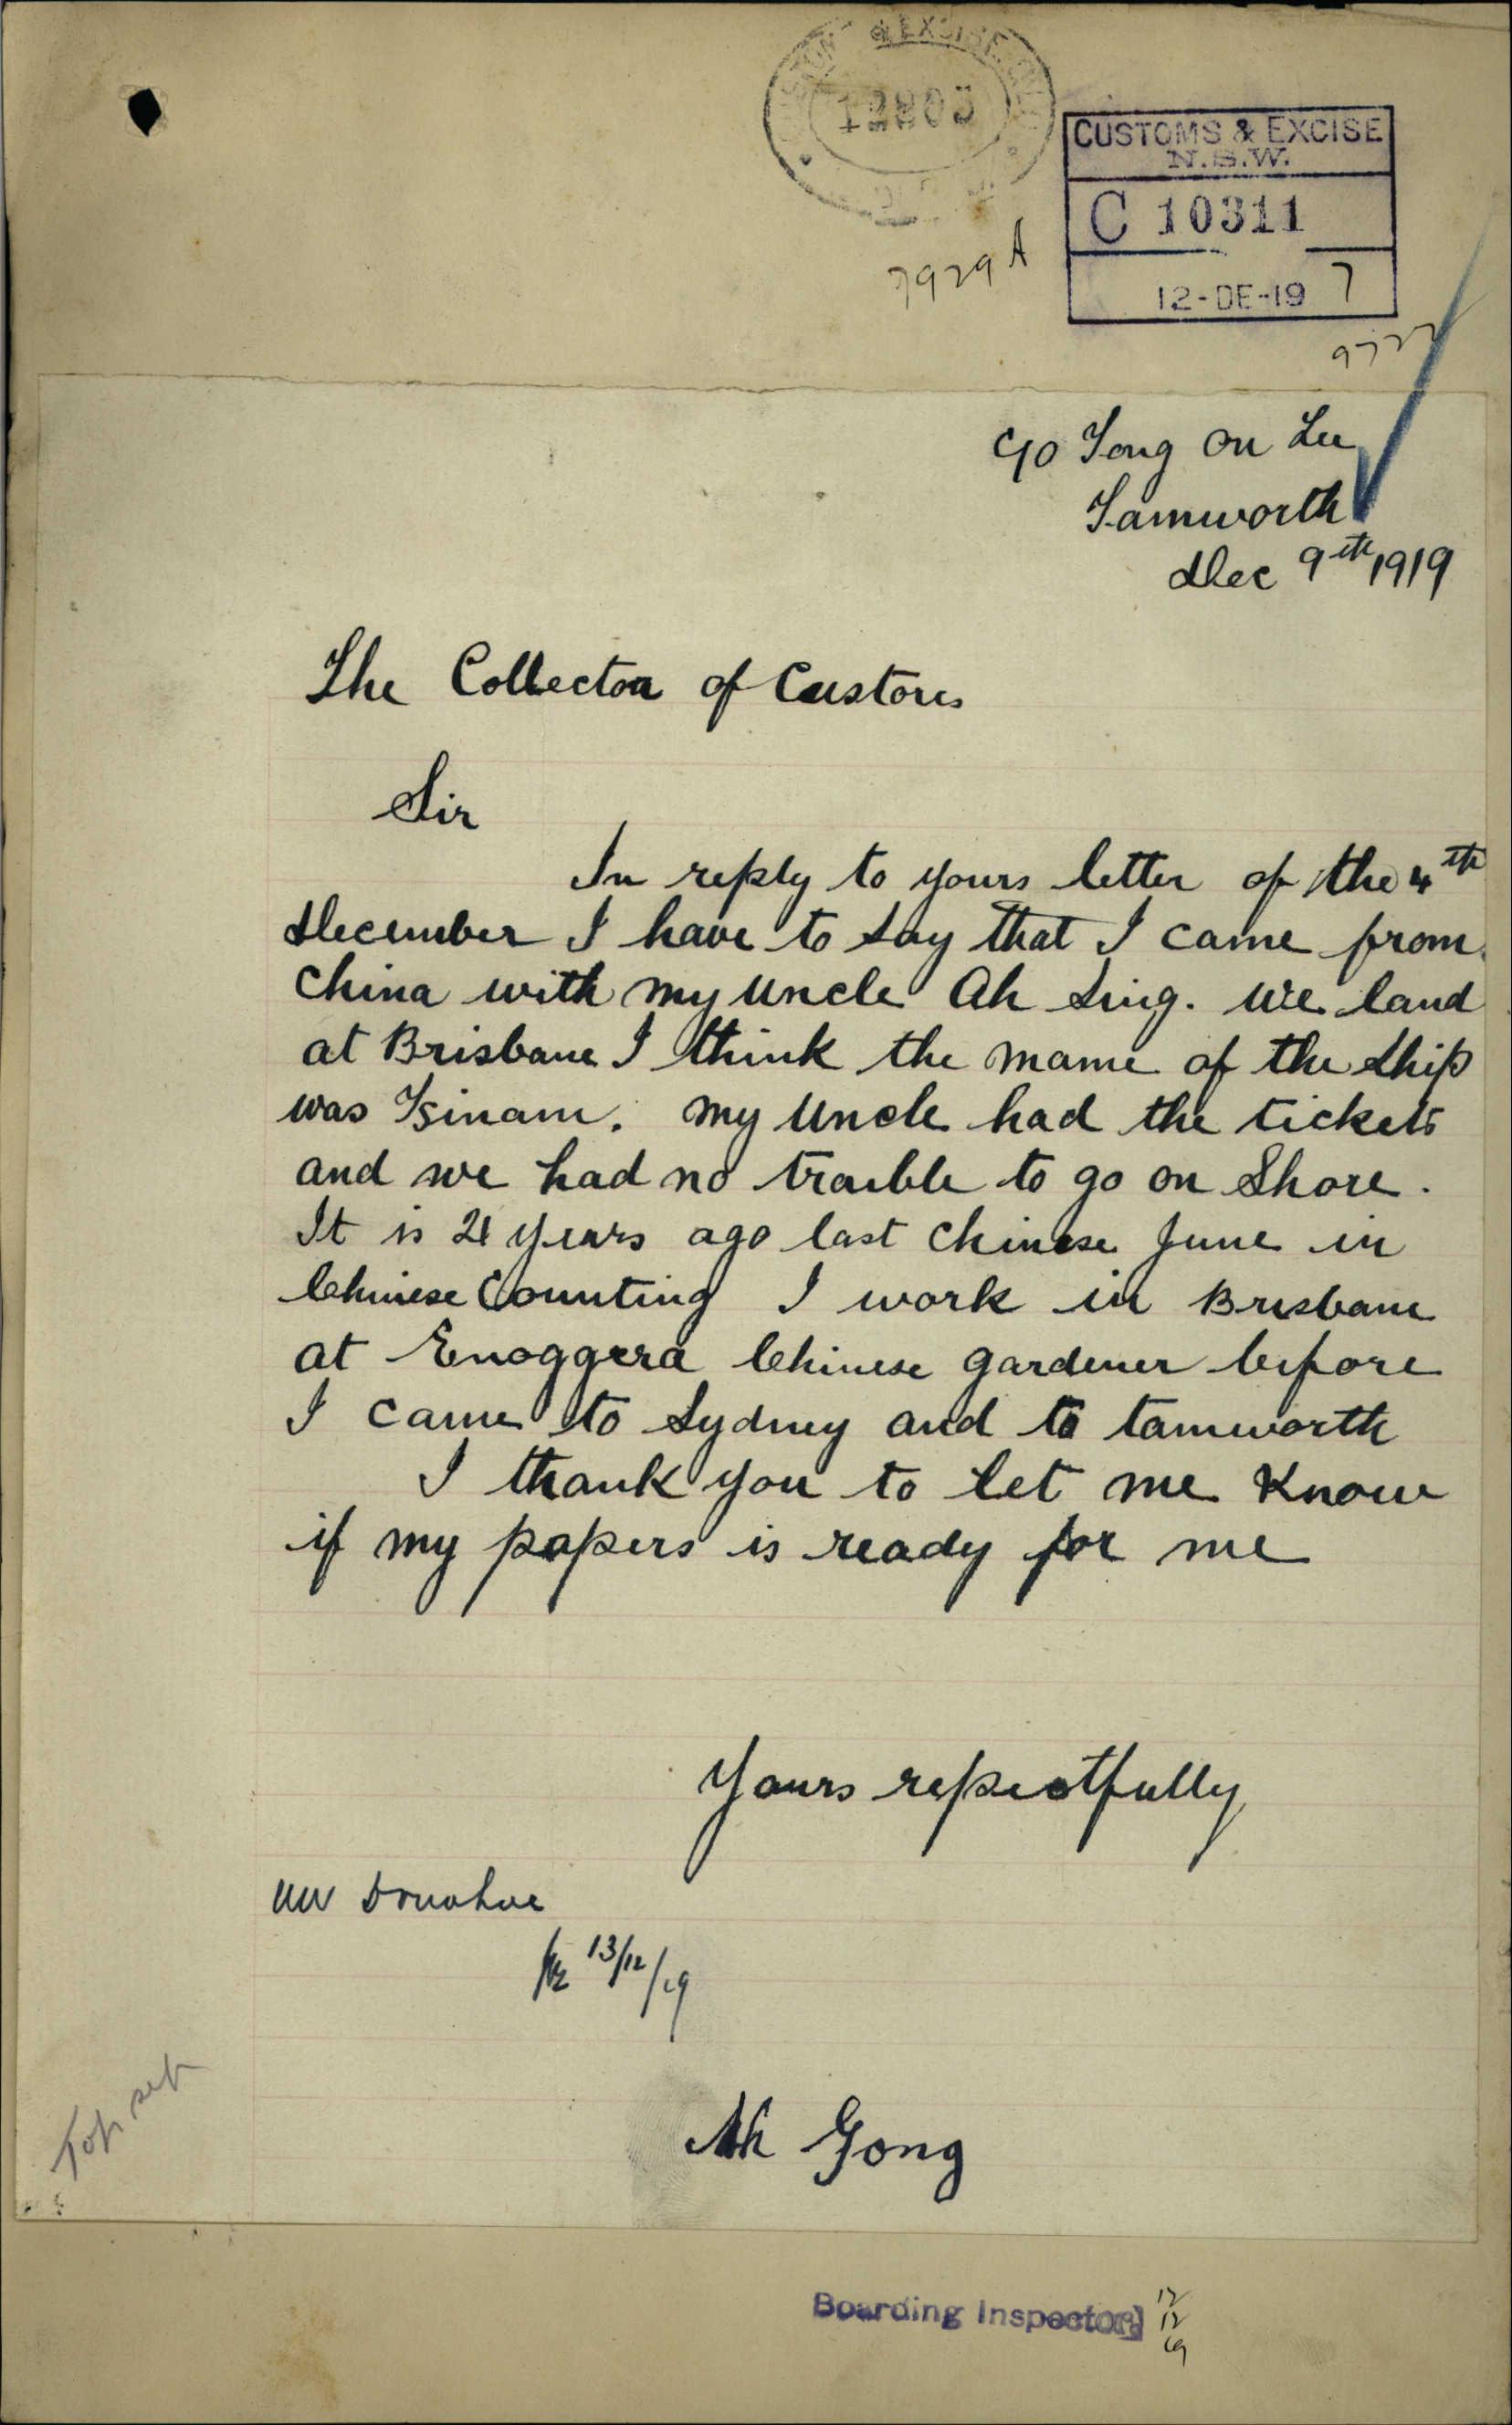 CUSTOMS & EXCISE
12805
CUSTOMS & EXCISE
N.S.W.
C 10311
12-DE-19 7
7929 A
c/o Tong On Lee
Tamworth
Dec 9th 1919
The Collector of Customs
Sir
In reply to yours letter of the 4th
December I have to say that I came from
China with my uncle Ah Sing. We land
at Brisbane I think the mame of the ship
was Tsinam. my Uncle had the tickets
and we had no trouble to go on Shore.
It is 21 years ago last Chinese June in
Chinese Counting I work in Brisbane
at Enoggera Chinese gardener before
I came to Sydney and to tamworth
I thank you to let me Know
if my papers is ready for me
Yours repsectfully
Mr Donohoe
13/12/19
Ah Gong
Top set
Boarding Inspector
12
12
19